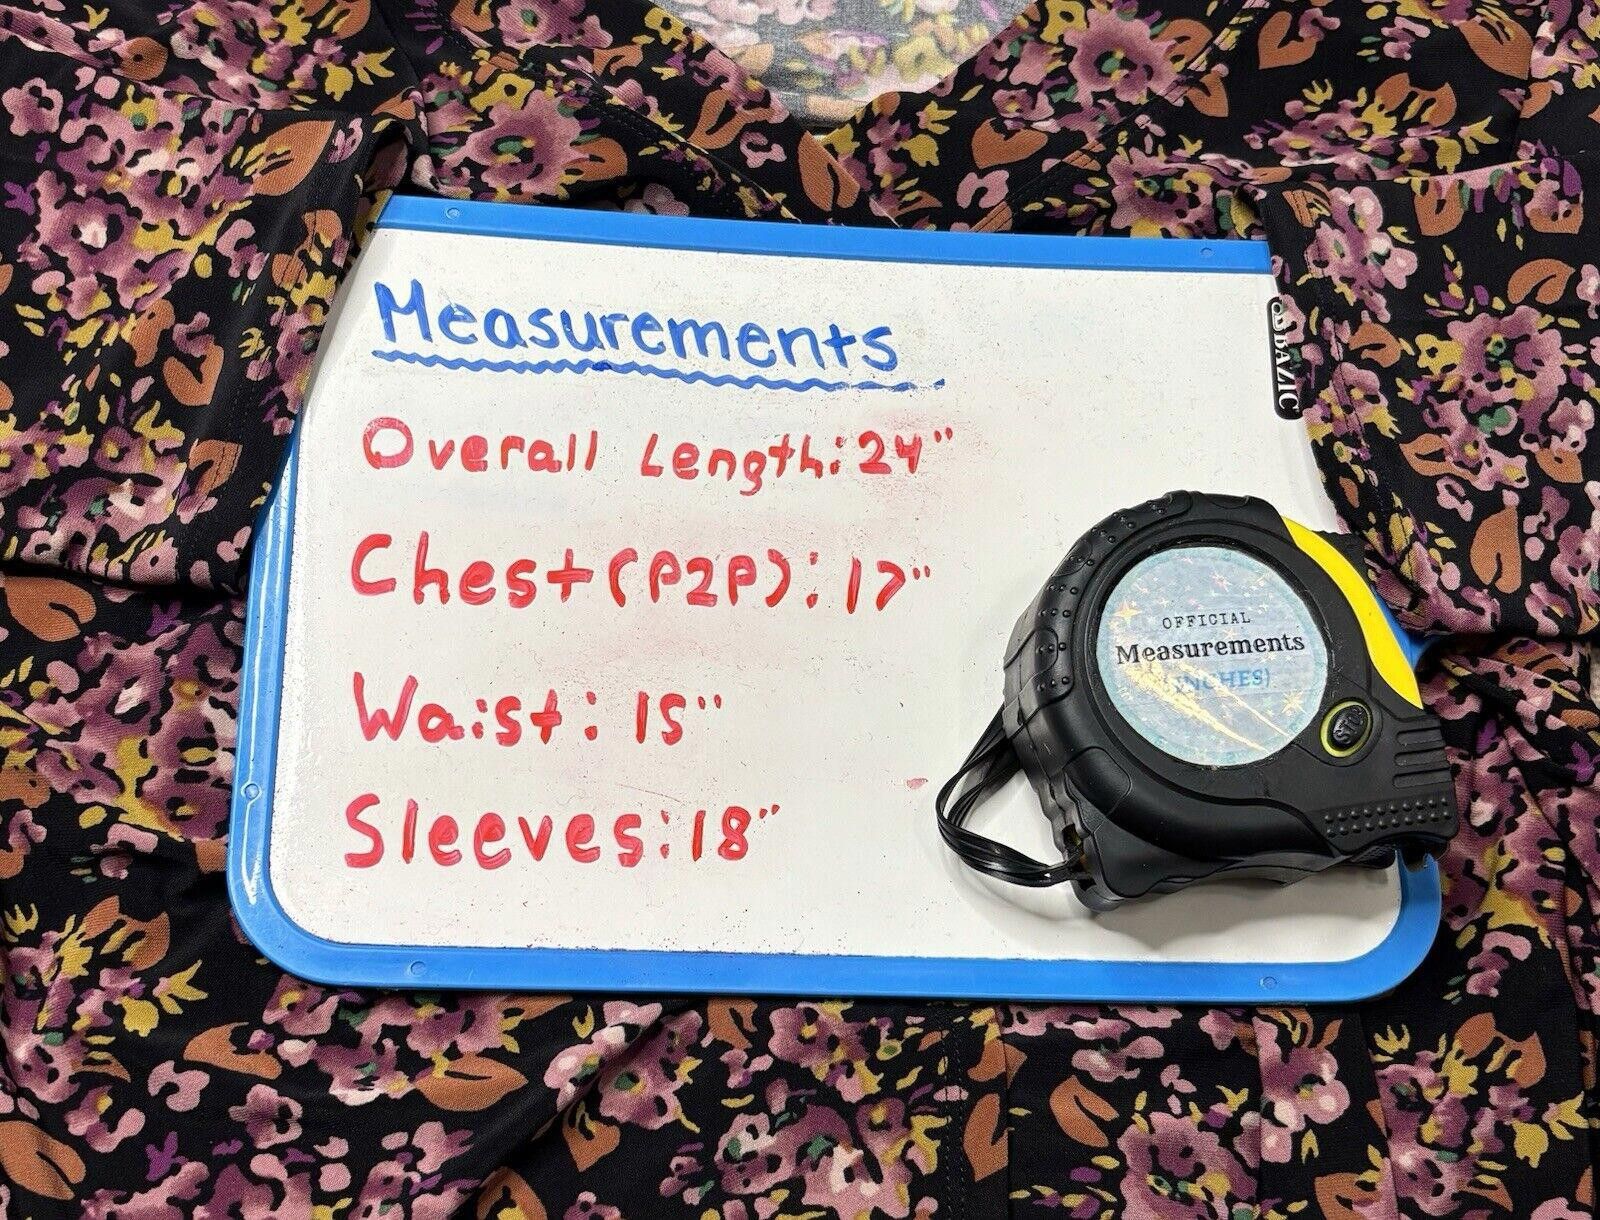 Measurements
Overall Length: 24"
Chest (P2P): 17"
Waist: 15"
Sleeves: 18"
BAZIC
OFFICIAL
Measurements
(INCHES)
STOP